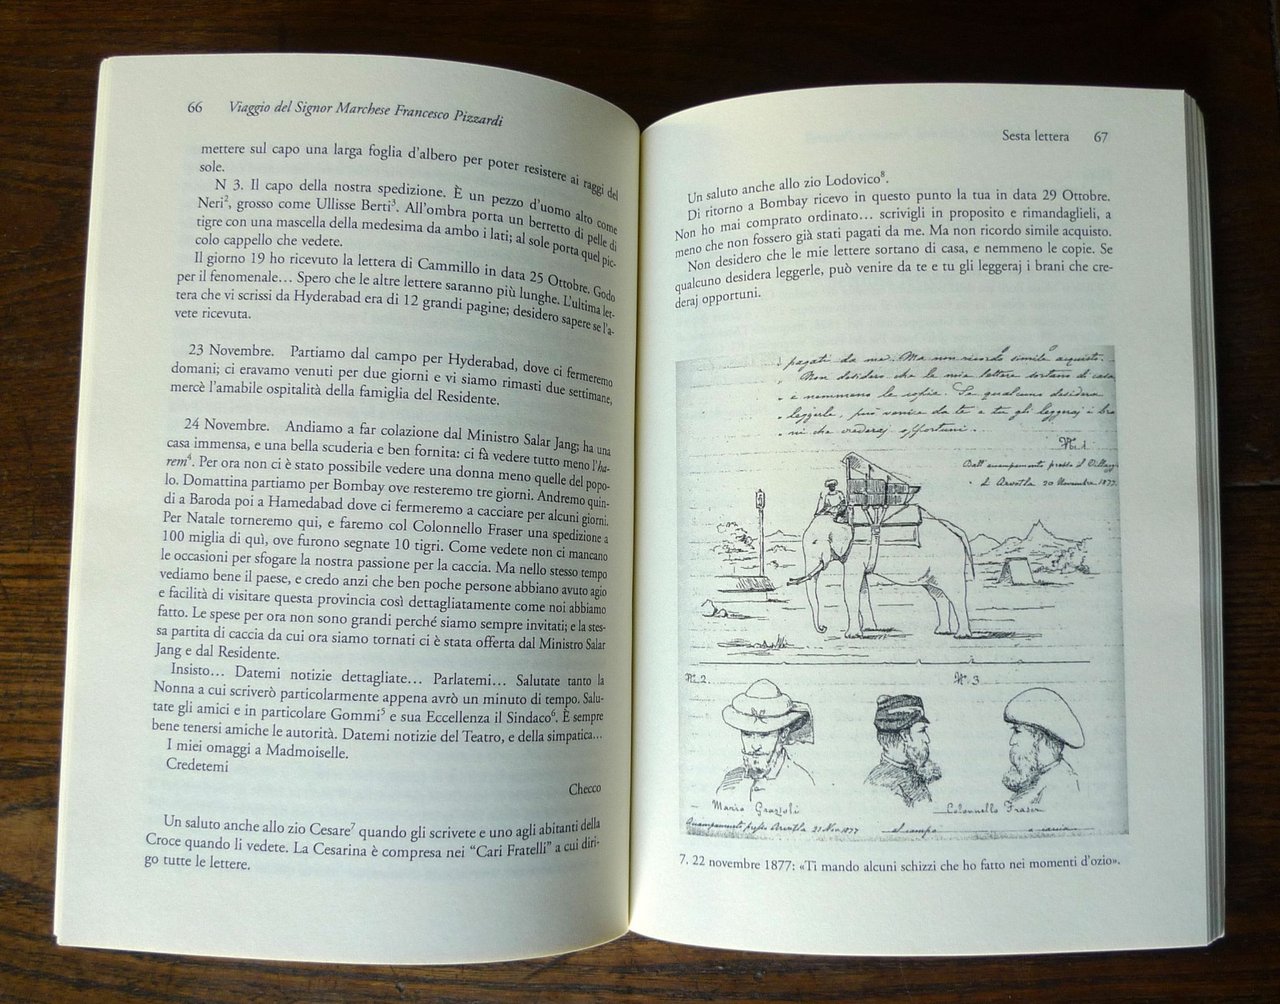 66 Viaggio del Signor Marchese Francesco Pizzardi
mettere sul capo una larga foglia d'albero per poter resistere ai raggi del
sole.
N 3. Il capo della nostra spedizione. È un pezzo d'uomo alto come
Neri², grosso come Ullisse Berti³. All'ombra porta un berretto di pelle di
tigre con una mascella della medesima da ambo i lati; al sole porta quel pic-
colo cappello che vedete.
Il giorno 19 ho ricevuto la lettera di Cammillo in data 25 Ottobre. Godo
per il fenomenale... Spero che le altre lettere saranno più lunghe. L'ultima let-
tera che vi scrissi da Hyderabad era di 12 grandi pagine; desidero sapere se l'a-
vete ricevuta.
23 Novembre. Partiamo dal campo per Hyderabad, dove ci fermeremo
domani; ci eravamo venuti per due giorni e vi siamo rimasti due settimane,
mercè l'amabile ospitalità della famiglia del Residente.
24 Novembre. Andiamo a far colazione dal Ministro Salar Jang; ha una
casa immensa, e una bella scuderia e ben fornita: ci fà vedere tutto meno l'ha-
rem⁴. Per ora non ci è stato possibile vedere una donna meno quelle del popo-
lo. Domattina partiamo per Bombay ove resteremo tre giorni. Andremo quin-
di a Baroda poi a Hamedabad dove ci fermeremo a cacciare per alcuni giorni.
Per Natale torneremo qui, e faremo col Colonnello Fraser una spedizione a
100 miglia di quì, ove furono segnate 10 tigri. Come vedete non ci mancano
le occasioni per sfogare la nostra passione per la caccia. Ma nello stesso tempo
vediamo bene il paese, e credo anzi che ben poche persone abbiano avuto agio
e facilità di visitare questa provincia così dettagliatamente come noi abbiamo
fatto. Le spese per ora non sono grandi perché siamo sempre invitati; e la stes-
sa partita di caccia da cui ora siamo tornati ci è stata offerta dal Ministro Salar
Jang e dal Residente.
Insisto... Datemi notizie dettagliate... Parlatemi... Salutate tanto la
Nonna a cui scriverò particolarmente appena avrò un minuto di tempo. Salu-
tate gli amici e in particolare Gommi⁵ e sua Eccellenza il Sindaco⁶. È sempre
bene tenersi amiche le autorità. Datemi notizie del Teatro, e della simpatica...
I miei omaggi a Madmoiselle.
Credetemi
Checco
Un saluto anche allo zio Cesare⁷ quando gli scrivete e uno agli abitanti della
Croce quando li vedete. La Cesarina è compresa nei "Cari Fratelli" a cui diri-
go tutte le lettere.
Sesta lettera 67
Un saluto anche allo zio Lodovico⁸.
Di ritorno a Bombay ricevo in questo punto la tua in data 29 Ottobre.
Non ho mai comprato ordinato... scrivigli in proposito e rimandaglieli, a
meno che non fossero già stati pagati da me. Ma non ricordo simile acquisto.
Non desidero che le mie lettere sortano di casa, e nemmeno le copie. Se
qualcuno desidera leggerle, può venire da te e tu gli leggeraj i brani che cre-
deraj opportuni.
pagati da me. Ma non ricordo simile acquisto.
Non desidero che le mie lettere sortano di casa
e nemmeno le copie. Se qualcuno desidera
leggerle, può venire da te e tu gli leggeraj i bra
ni che crederaj opportuni.
N. 1
Dall'accampamento presso il Villaggi
20 Novembre 1877.
N. 2
N. 3
Mario Grazioli
Colonnello Fraser
Accampamento presso 21 Nov 1877
al campo
a caccia
7. 22 novembre 1877: «Ti mando alcuni schizzi che ho fatto nei momenti d'ozio».